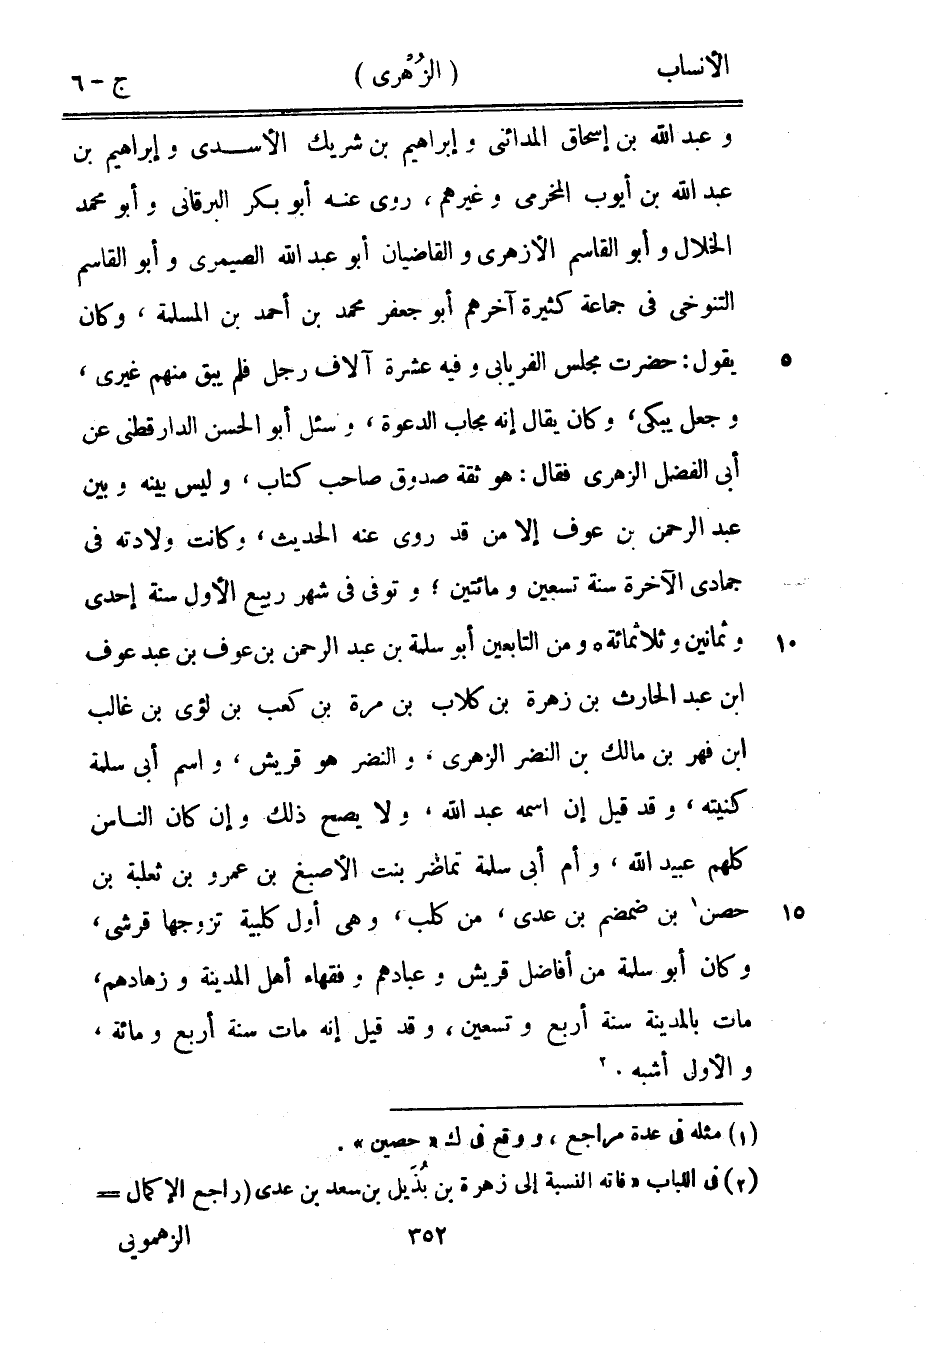 الأنساب ( الزُهْرى ) ج - ٦
و عبد الله بن إسحاق المدائنى و إبراهيم بن شريك الأسـدى و إبراهيم بن
عبد الله بن أيوب المخرمى و غيرهم ، روى عنه أبو بكر البرقانى و أبو محمد
الخلال و أبو القاسم الأزهرى و القاضيان أبو عبد الله الصيمرى و أبو القاسم
التنوخى فى جماعة كثيرة آخرهم أبو جعفر محمد بن أحمد بن المسلمة ، وكان
يقول : حضرت مجلس الفريابى و فيه عشرة آلاف رجل فلم يبق منهم غيرى ، ٥
و جعل يبكى ، وكان يقال إنه مجاب الدعوة ، و سئل أبو الحسن الدارقطنى عن
أبى الفضل الزهرى فقال : هو ثقة صدوق صاحب كتاب ، و ليس بينه و بين
عبد الرحمن بن عوف إلا من قد روى عنه الحديث ، وكانت ولادته فى
جمادى الآخرة سنة تسعين و مائتين ؛ و توفى فى شهر ربيع الأول سنة إحدى
و ثمانين و ثلاثمائة ه و من التابعين أبو سلمة بن عبد الرحمن بن عوف بن عبد عوف ١٠
ابن عبد الحارث بن زهرة بن كلاب بن مرة بن كعب بن لؤى بن غالب
ابن فهر بن مالك بن النضر الزهرى ، و النضر هو قريش ، و اسم أبى سلمة
كنيته ، و قد قيل إن اسمه عبد الله ، و لا يصح ذلك و إن كان النـاس
كلهم عبيد الله ، و أم أبى سلمة تماضر بنت الأصبغ بن عمرو بن ثعلبة بن
حصن ١ بن ضمضم بن عدى ، من كلب ، و هى أول كلبية تزوجها قرشى ، ١٥
و كان أبو سلمة من أفاضل قريش و عبادهم و فقهاء أهل المدينة و زهادهم ،
مات بالمدينة سنة أربع و تسعين ، و قد قيل إنه مات سنة أربع و مائة ،
و الأول أشبه . ٢
(١) مثله فى عدة مراجع ، و وقع فى ك « حصين » .
(٢) فى اللباب « فاته النسبة إلى زهرة بن بُذَيل بن سعد بن عدى ( راجع الإكمال =
٣٥٢ الزهمويى